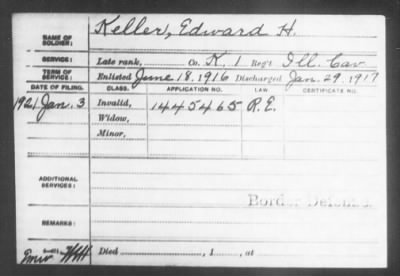 NAME OF SOLDIER: Keller, Edward H.
SERVICE: Late rank, Co. K. 1 Reg't Ill. Cav
TERM OF SERVICE: Enlisted June 18, 1916 Discharged Jan. 29, 1917
DATE OF FILING. CLASS. APPLICATION NO. LAW. CERTIFICATE NO.
1921 Jan. 3 Invalid, 1445465 R.E.
Widow,
Minor,
ADDITIONAL SERVICES:
Border Defense.
REMARKS:
Died , 1 , at